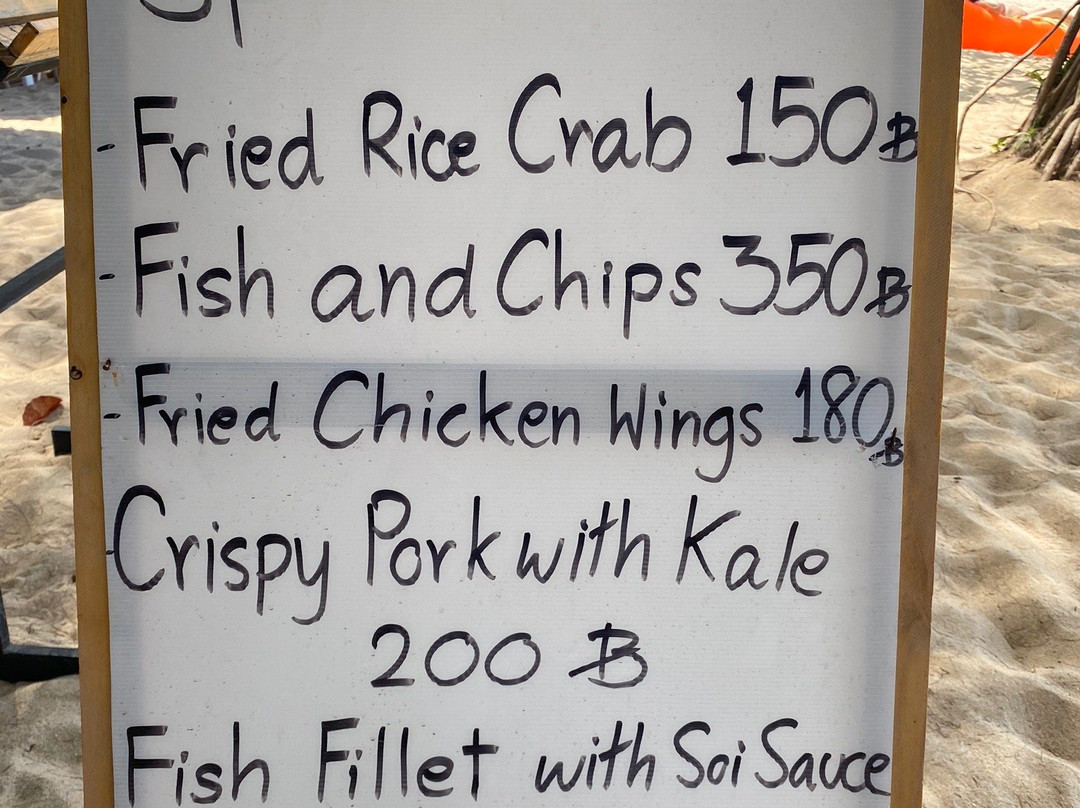 - Fried Rice Crab 150฿
- Fish and Chips 350฿
- Fried Chicken Wings 180฿
- Crispy Pork with Kale
200 ฿
Fish Fillet with Soi Sauce